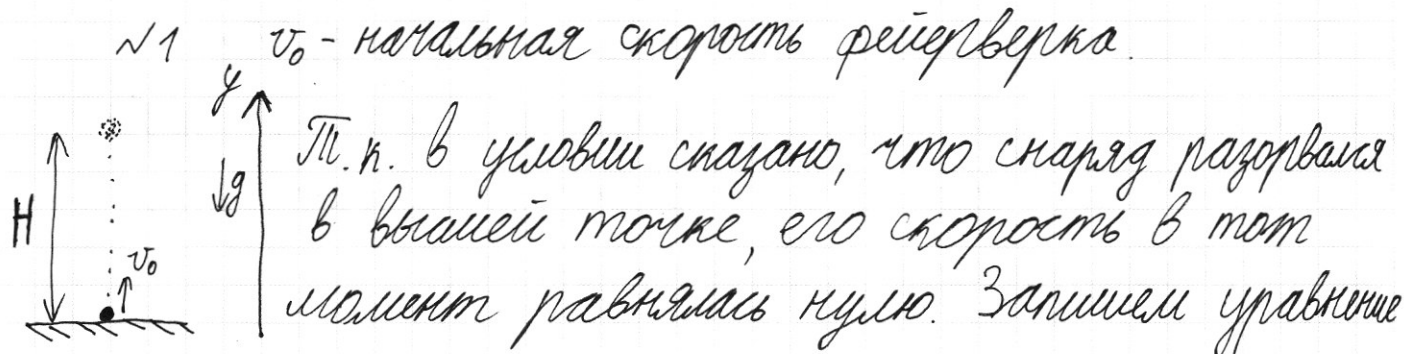 №1 v₀ - начальная скорость фейерверка.
y
Т.к. в условии сказано, что снаряд разорвался
H ↓g в высшей точке, его скорость в тот
v₀
момент равнялась нулю. Запишем уравнение